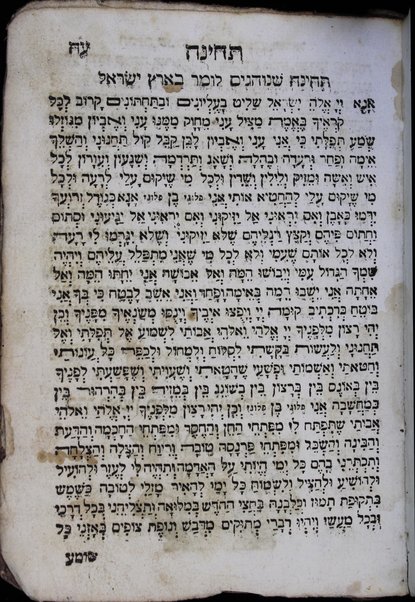 תחינה
עח
תחינה שנוהגים לומר בארץ ישראל
אנא יי אלהי ישראל שליט בעליונים ובתחתונים קרוב לכל
קראיך באמת מציל עני מחזק ממנו עני ואביון מגוזלו
שמע תפלתי כי אני עני ואביון לכן קבל קול תחנוני והשלך
אימה ופחד ורעדה ובהלה ושאנ ותרדמה ושגעון ועורון לכל
איש ואשה ומזיק ולילין ושדין ולכל מי שיקום עלי לרעה ולכל
מי שיקום עלי להחטיא אותי אני פלוני בן פלוני אנא בגודל זרועך
ידמו כאבן ואם יראוני אל יזיקוני ואם יראוני אל יגיעוני וסתום
וחתום פיהם וקצץ רגליהם שלא יזיקוני ושלא יגרמו לי רעה
ולא לכל אותם שעמי ולא לכל מי שאני מתפלל עליהם ויהיה
שמך הגדול עמי ויבושו המה ואל אבושה אני יחתו המה ואל
אחתה אני ישובו רמה באימה ופחד ואני אשב לבטח כי בך אני
בוטח ברכתיב קומה יי ויפצו איביך וינסו משנאיך מפניך וכן
יהי רצון מלפניך יי אלהי ואלהי אבותי לשמוע אל תפלתי ואל
תחנוני ולעשות בקשתי לסלוח ולמחול ולכפר כל עונותי
וחטאתי ואשמותי ופשעי שחטאתי ושעויתי ושפשעתי לפניך
בין באונס בין ברצון בין בשוגג בין במזיד בין בהרהור בין
במחשבה אני פלוני בן פלוני וכן יהי רצון מלפניך יי אלהי ואלהי
אבותי שתפתח לי מפתחי החן והחסד ומפתחי החכמה והדעת
והבינה והשכל ומפתחי פרנסה טובה ורווח והצלה והצלחה
ותכתרני בהם כל ימי היותי על האדמה ותהיה לי לעזר ולהועיל
ולהושיע ולהציל ולשמוח כל ימי להאיר מזלי לטובה כשמש
בתקופת תמוז וכלבנה בחצי החדש במלואה ותצליחני בכל דרכי
ובכל מעשי ויהיו דברי מתוקים מדבש ונופת צופים באזני כל
שומע